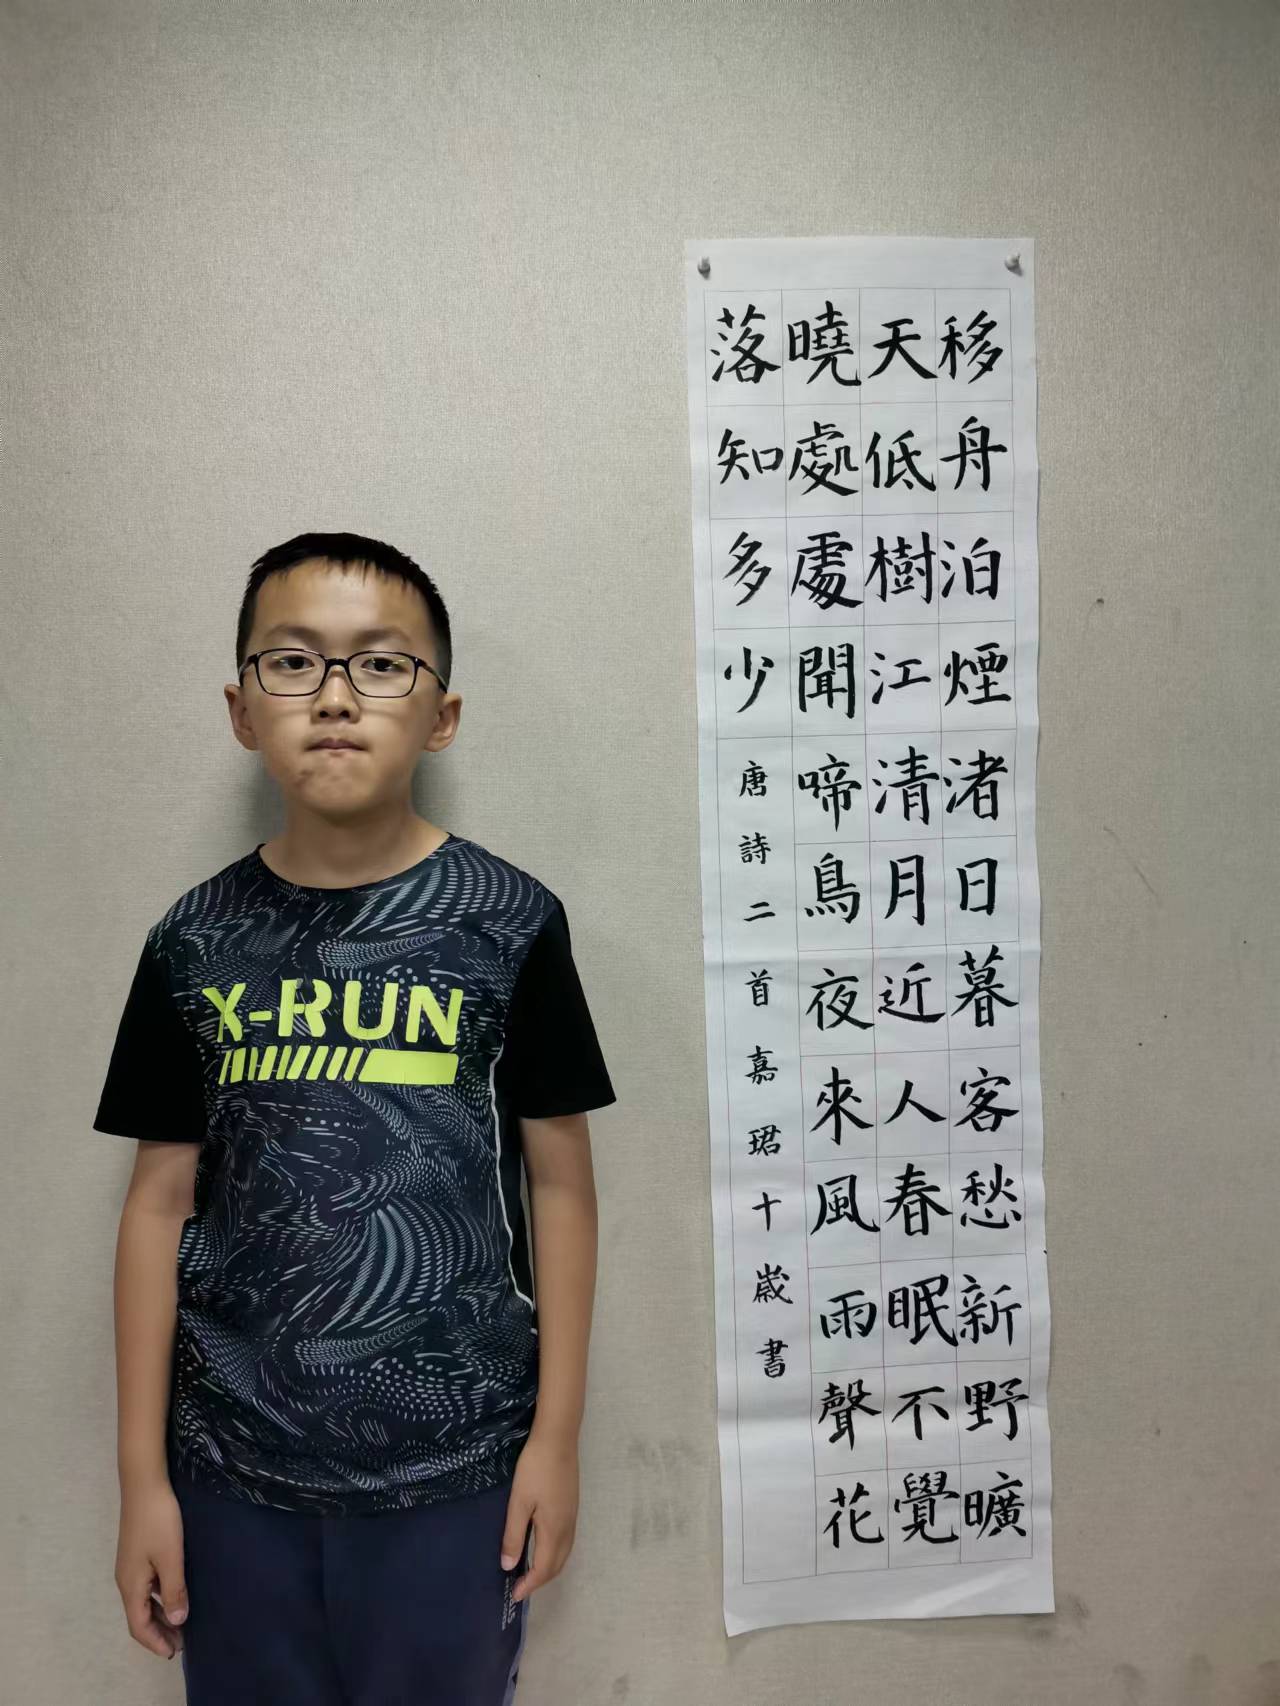 移舟泊煙渚日暮客愁新野曠
天低樹江清月近人春眠不覺
曉處處聞啼鳥夜來風雨聲花
落知多少
唐詩二首嘉珺十歲書
X-RUN